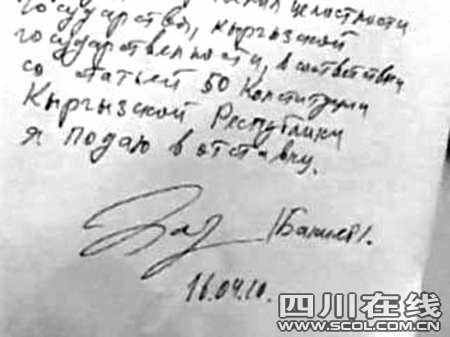 целостности
государства, кыргызской
государственности, в соответствии
со статьей 50 Конституции
Кыргызской Республики
я подаю в отставку.
/Бакиев/.
16.04.10.
四川在线
WWW.SCOL.COM.CN